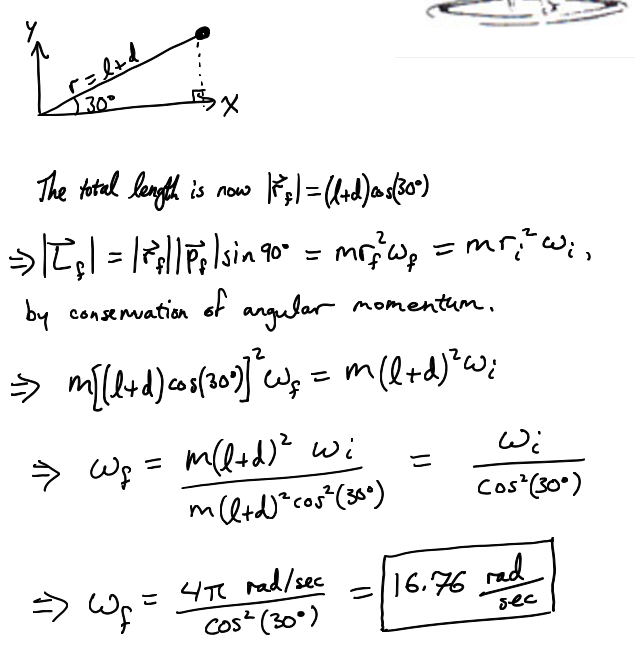 y
r = l+d
30°
x
The total length is now |r⃗_f| = (l+d)cos(30°)
⇒ |L⃗_f| = |r⃗_f||p⃗_f| sin 90° = mr_f²ω_f = mr_i²ω_i,
by conservation of angular momentum.
⇒ m[(l+d)cos(30°)]²ω_f = m(l+d)²ω_i
⇒ ω_f = m(l+d)² ω_i / m(l+d)²cos²(30°) = ω_i / cos²(30°)
⇒ ω_f = 4π rad/sec / cos²(30°) = 16.76 rad/sec